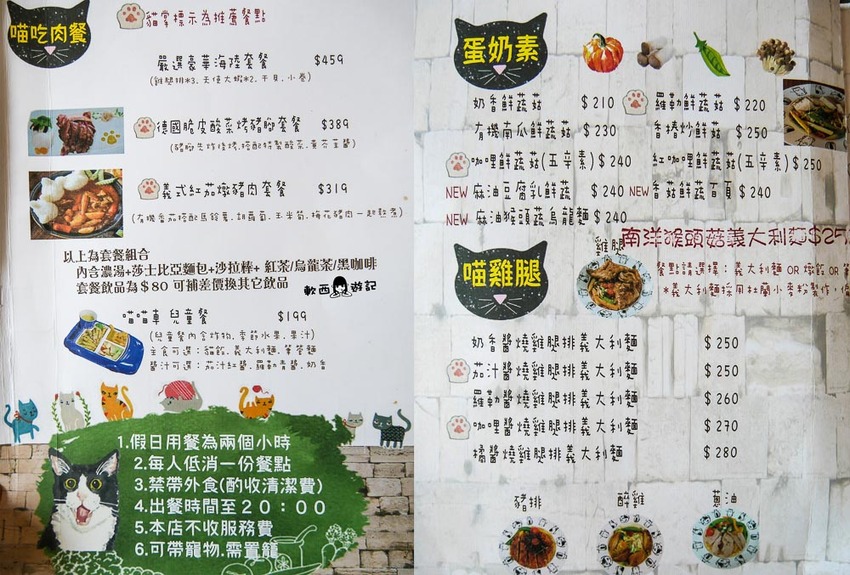 喵吃肉餐
貓掌標示為推薦餐點
嚴選豪華海陸套餐 $459
(雞腿排*3.天使大蝦*2.干貝.小卷)
德國脆皮酸菜烤豬腳套餐 $389
(豬腳先炸後烤.搭配特製酸菜.黃芥茉醬)
義式紅茄燉豬肉套餐 $319
(有機番茄搭配馬鈴薯.胡蘿蔔.玉米筍.梅花豬肉一起熬煮)
以上為套餐組合
內含濃湯+莎士比亞麵包+沙拉棒+ 紅茶/烏龍茶/黑咖啡
套餐飲品為$80 可補差價換其它飲品
軟西 遊記
喵喵車 兒童餐 $199
(兒童餐內含炸物.季節水果.果汁)
主食可選:貓飯.義大利麵.筆管麵
醬汁可選:茄汁紅醬.羅勒青醬.奶香
1.假日用餐為兩個小時
2.每人低消一份餐點
3.禁帶外食(酌收清潔費)
4.出餐時間至20:00
5.本店不收服務費
6.可帶寵物.需置籠
蛋奶素
奶香鮮蔬菇 $210 羅勒鮮蔬菇 $220
有機南瓜鮮蔬菇 $230 香椿炒鮮菇 $250
咖哩鮮蔬菇(五辛素) $240 紅咖哩鮮蔬菇(五辛素) $250
NEW 麻油豆腐乳鮮蔬 $240 NEW 香菇鮮蔬百頁 $240
NEW 麻油猴頭蔬烏龍麵 $240
南洋猴頭菇義大利麵$25
喵雞腿
雞腿
餐點請選擇:義大利麵 OR 燉飯 OR 筆
*義大利麵採用杜蘭小麥粉製作,偏
奶香醬燒雞腿排義大利麵 $250
茄汁醬燒雞腿排義大利麵 $250
羅勒醬燒雞腿排義大利麵 $260
咖哩醬燒雞腿排義大利麵 $270
橘醬燒雞腿排義大利麵 $280
豬排 醉雞 蔥油